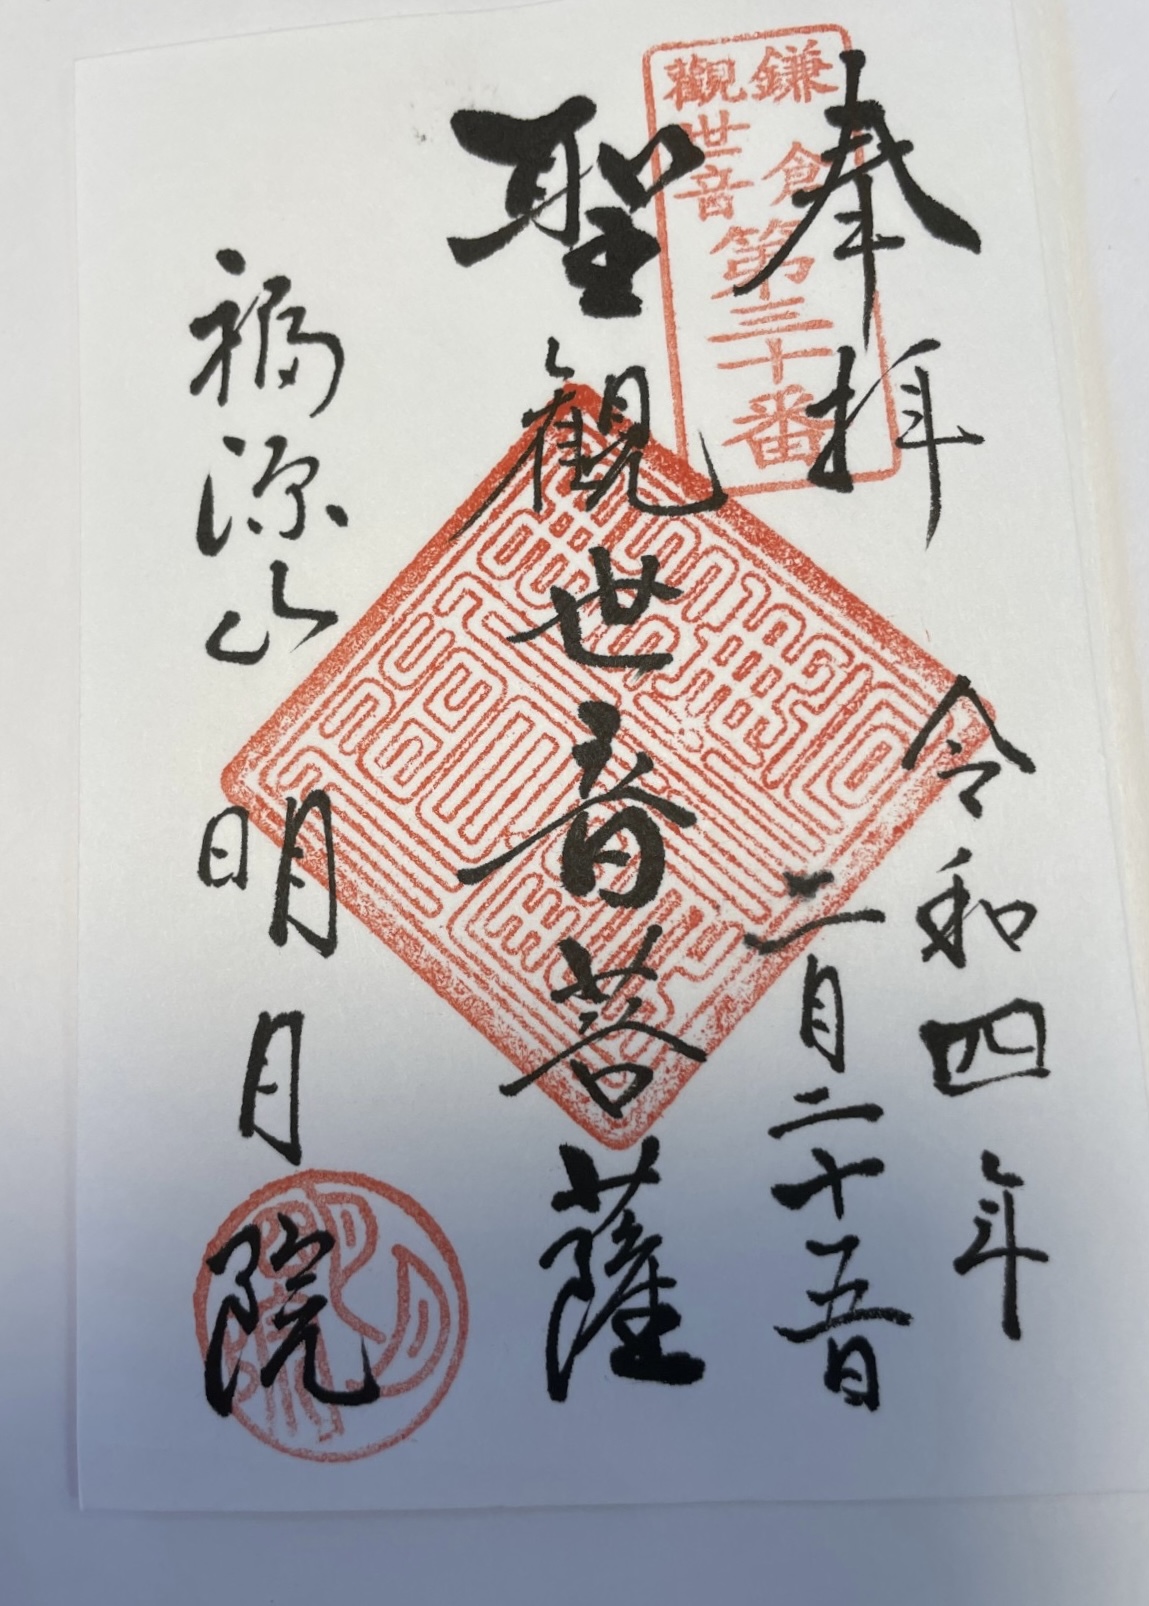 奉拝
鎌倉
觀世音
第三十番
令和四年
二月二十五日
聖觀世音菩薩
福源山
明月院